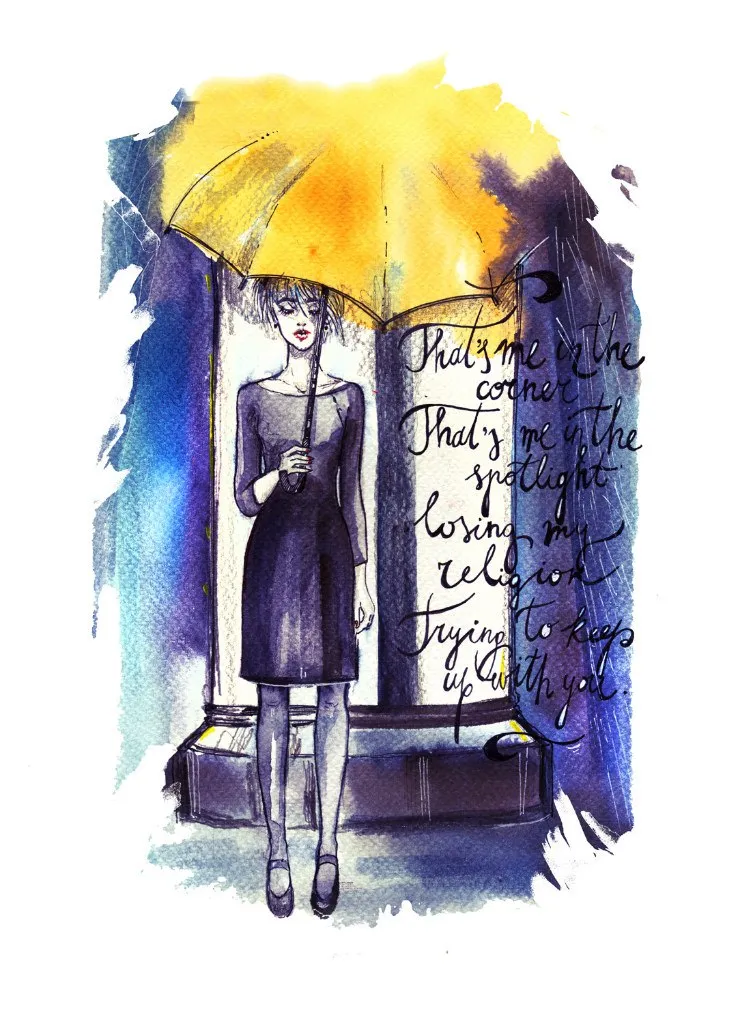 That's me in the
corner
That's me in the
spotlight
losing my
religion
Trying to keep
up with you.